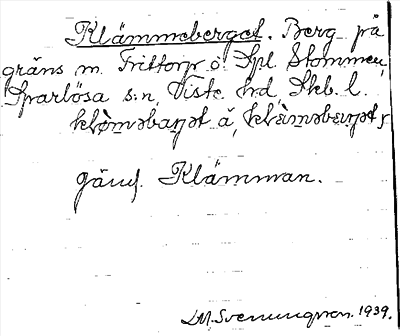 Klämmeberget. Berg på
gräns m. Frittorp o. Spl. Stommen,
Sparlösa s:n, Viste hd Skb. l.
klèmǝbaŋǝt å, klèmǝbæŋǝt y
jämf. Klämman.
L.M. Svenungsson. 1939.